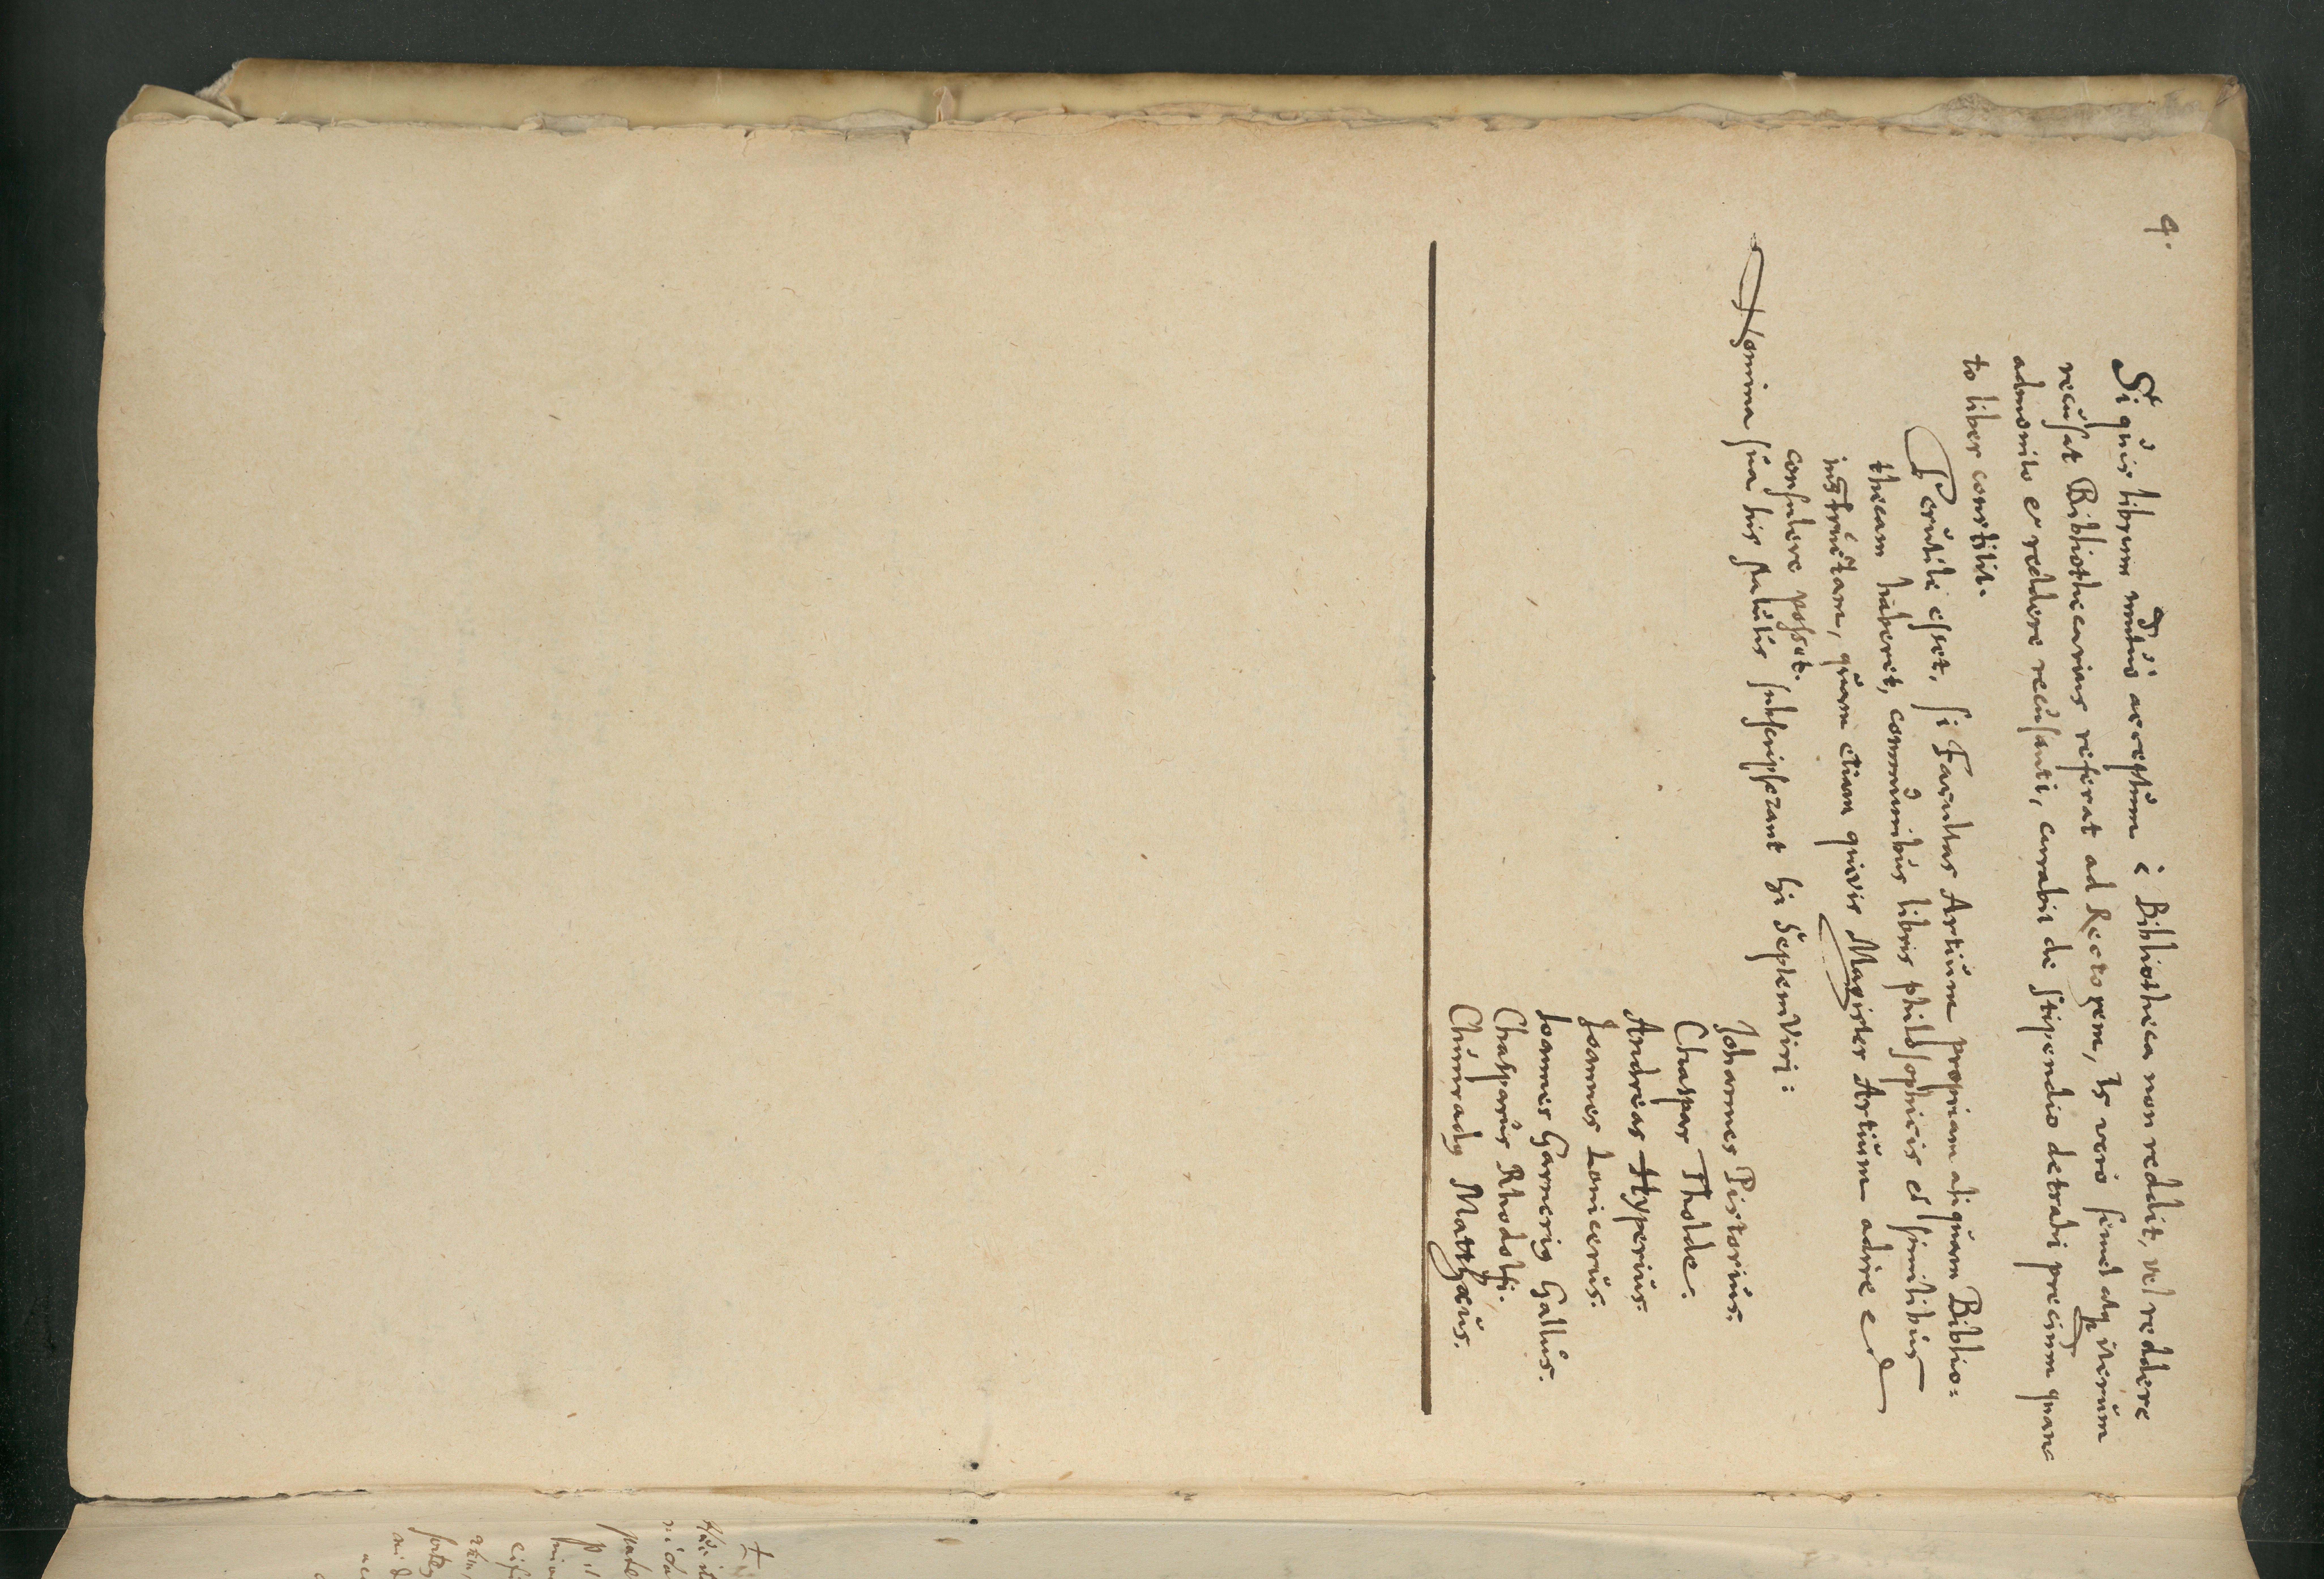 4.
Si quis librum mutuò acceptum è Bibliotheca non reddit, vel reddere
recusat Bibliothecarius referat ad Rectorem, Is verò semel atq iterum
admonito et reddere recusanti, curabit de stipendio detrahi precium quan
to liber constitit.
Perutile esset, si Facultas Artium propriam aliquam Biblio:
thecam haberet, communibus libris philosophicis et similibus
instructam, quam etiam quivis Magister Artium adire et
consulere posset.
Nomina sua his statutis subscripserant hi SeptemViri:
Johannes Pistorius.
Chaspar Tholde.
Andreas Hyperius.
Joannes Lonicerus.
Joannes Garnerig Gallus.
Chasparus Rhodolfi.
Chunrady Matthæus.